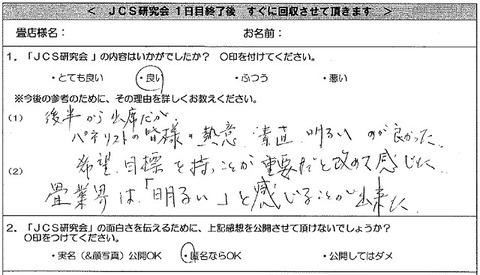 < JCS研究会 1日目終了後 すぐに回収させて頂きます >
畳店様名： お名前：
1．「JCS研究会」の内容はいかがでしたか？ ○印を付けてください。
・とても良い ・良い ・ふつう ・悪い
※今後の参考のために、その理由を詳しくお教えください。
(1) 後半から出席だが、
パネリストの皆様の熱意 素直 明るい のが良かった。
(2) 希望、目標を持つことが重要だと改めて感じた
畳業界は「明るい」と感じることが出来た
2．「JCS研究会」の面白さを伝えるために、上記感想を公開させて頂けないでしょうか？
○印をつけてください。
・実名（&顔写真）公開OK ・匿名ならOK ・公開してはダメ